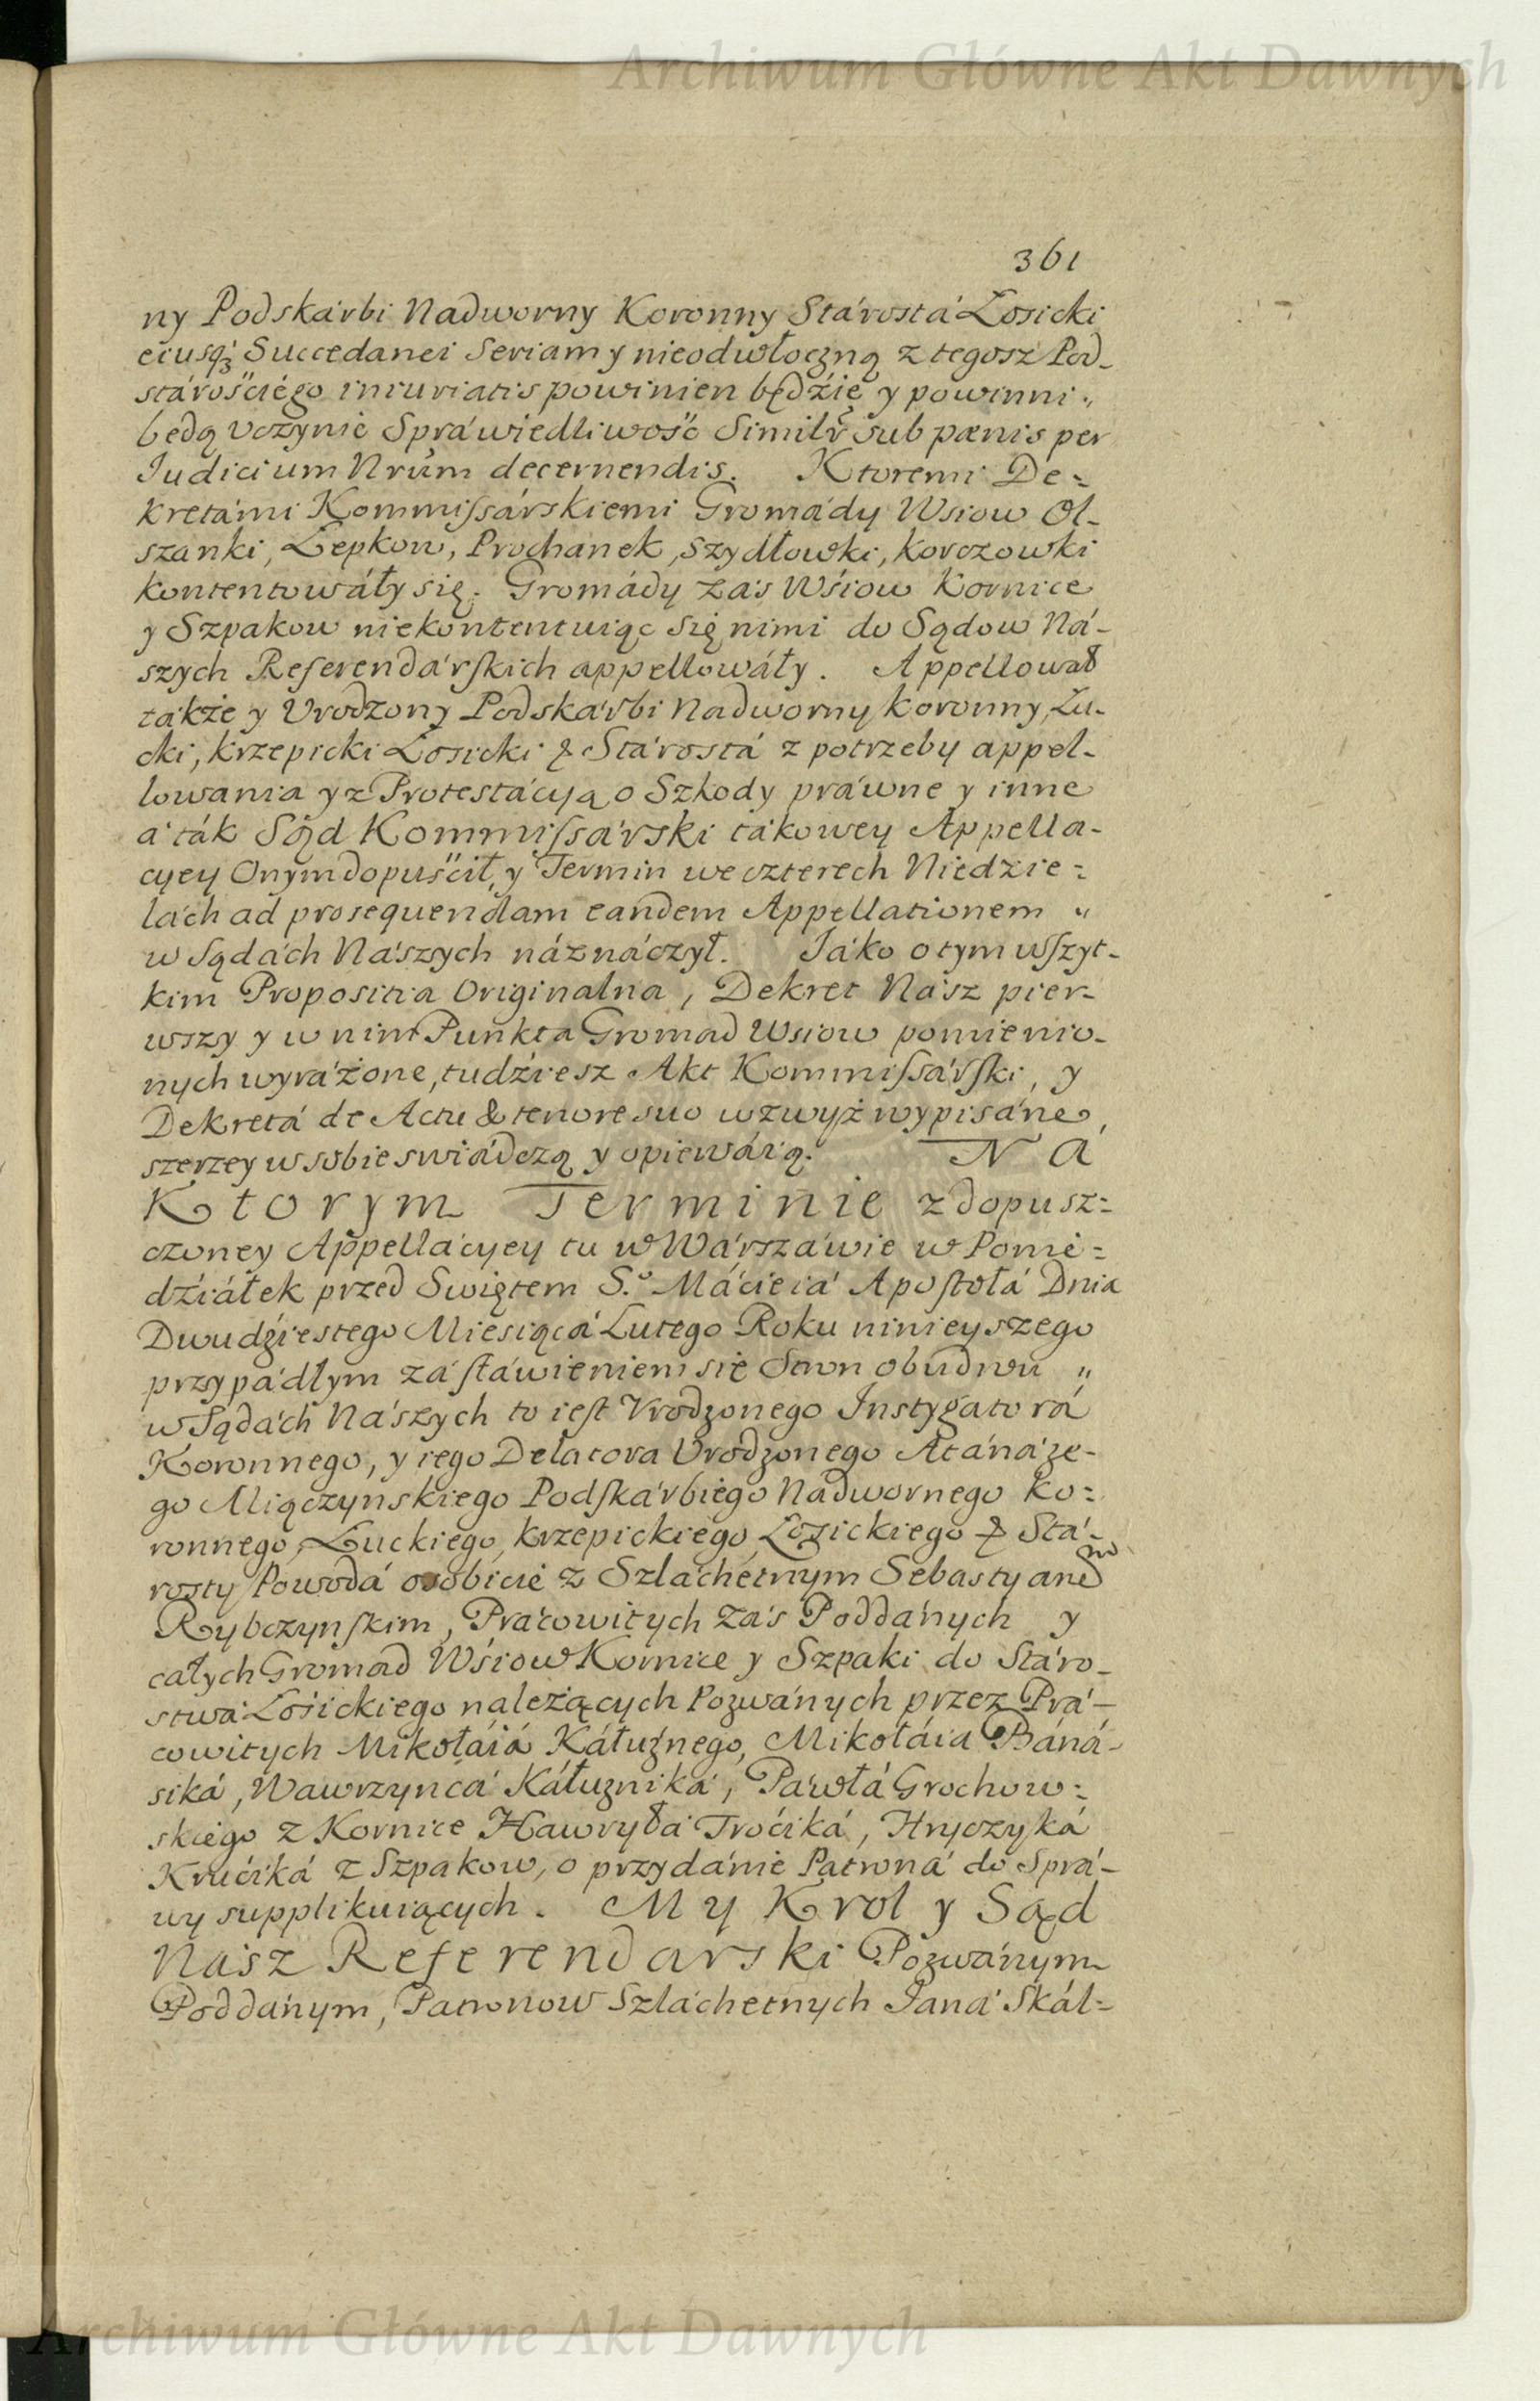 Archiwum Główne Akt Dawnych
361
ny Podskárbi Nadworny Koronny Stárostá Łosicki
eiusq; Succedanei Seriam y nieodwłoczną z tegosz Pod-
stárośćiégo iniuriatis powinien będźie y powinni "
będą vczynić Spráwiedliwość Similr̃ sub pænis per
Iudicium Nrũm decernendis. Ktoremi De=
kretámi Kommiſsárskiemi Gromády Wsiow Ol-
szanki, Łepkow, Prochanek, Szydłowki, Korczowki
kontentowáły się. Gromády zás Wśiow Kornice
y Szpakow niekontentuiąc się nimi do Sądow Ná-
szych Referendárſkich appellowáły. Appellował
tákże y Vrodzony Podskárbi Nadworny Koronny, Łu-
cki, Krzepicki Łosicki & Stárostá z potrzeby appel-
lowania y z Protestácyą o Szkody práwne y inne
a ták Sąd Kommiſsárski tákowey Appella-
cyey Onym dopuśćił, y Termin we czterech Niedzie=
lách ad prosequendam eandem Appellationem "
w Sądách Nászych náznáczył. Iáko o tym wſzyt-
kim Propositia Originalna, Dekret Nász pier-
wszy y w nim Punkta Gromad Wsiow pomienio-
nych wyráżone, tudźiesz Akt Kommiſsárſki, y
Dekretá de Actu & tenore suo wzwyż wypisáne,
szerzey w sobie swiádczą y opiewáią. N á
K t o r y m T e r m i n i e z dopusz=
czoney Appellácyey tu w Wárszáwie w Ponie=
dźiáłek przed Swiętem S.º Máćieiá Apoſtołá Dnia
Dwudźiestego Miesiącá Lutego Roku ninieyszego
przypádłym zá ſtáwieniem się Stron obudwu "
w Sądách Nászych to ieſt Vrodzonego Instygatorá
Koronnego, y iego Delatora Vrodzonego Atánáze-
go Miączynskiego Podſkárbiego Nadwornego Ko=
ronnego, Łuckiego, Krzepickiego, Łosickiego & Stá-
rosty Powodá osobićie z Szláchetnym Sebastyanem
Rybczynſkim, Prácowitych zás Poddánych y
całych Gromad Wśiow Kornice y Szpaki do Stáro-
stwá Łosickiego należących Pozwánych przez Prá-
cowitych Mikołáiá Káłuźnego, Mikołáia Báná-
siká, Wawrzyncá Káłuznika, Páwłá Grochow=
skiego z Kornice Hawryłá Troćiká, Hryczyká
Krućiká z Szpakow, o przydánie Patroná do Sprá-
wy supplikuiących. M y K r o l y S ą d
N á s z R e f e r e n d a r s k i Pozwánym
Poddánym, Patronow Szláchetnych Janá Skál=
Archiwum Główne Akt Dawnych